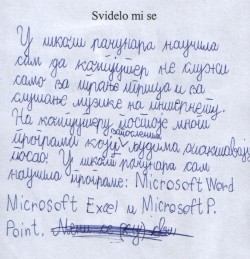 Svidelo mi se
У школи рачунара научила
сам да компјутер не служи
само за играње игрица и за
слушање музике на интернету.
На компјутеру постоје многи
запосленима
програми који људима олакшавају
посао. У школи рачунара сам
научила програме: Microsoft Word
Microsoft Exel и Microsoft P.
Point.